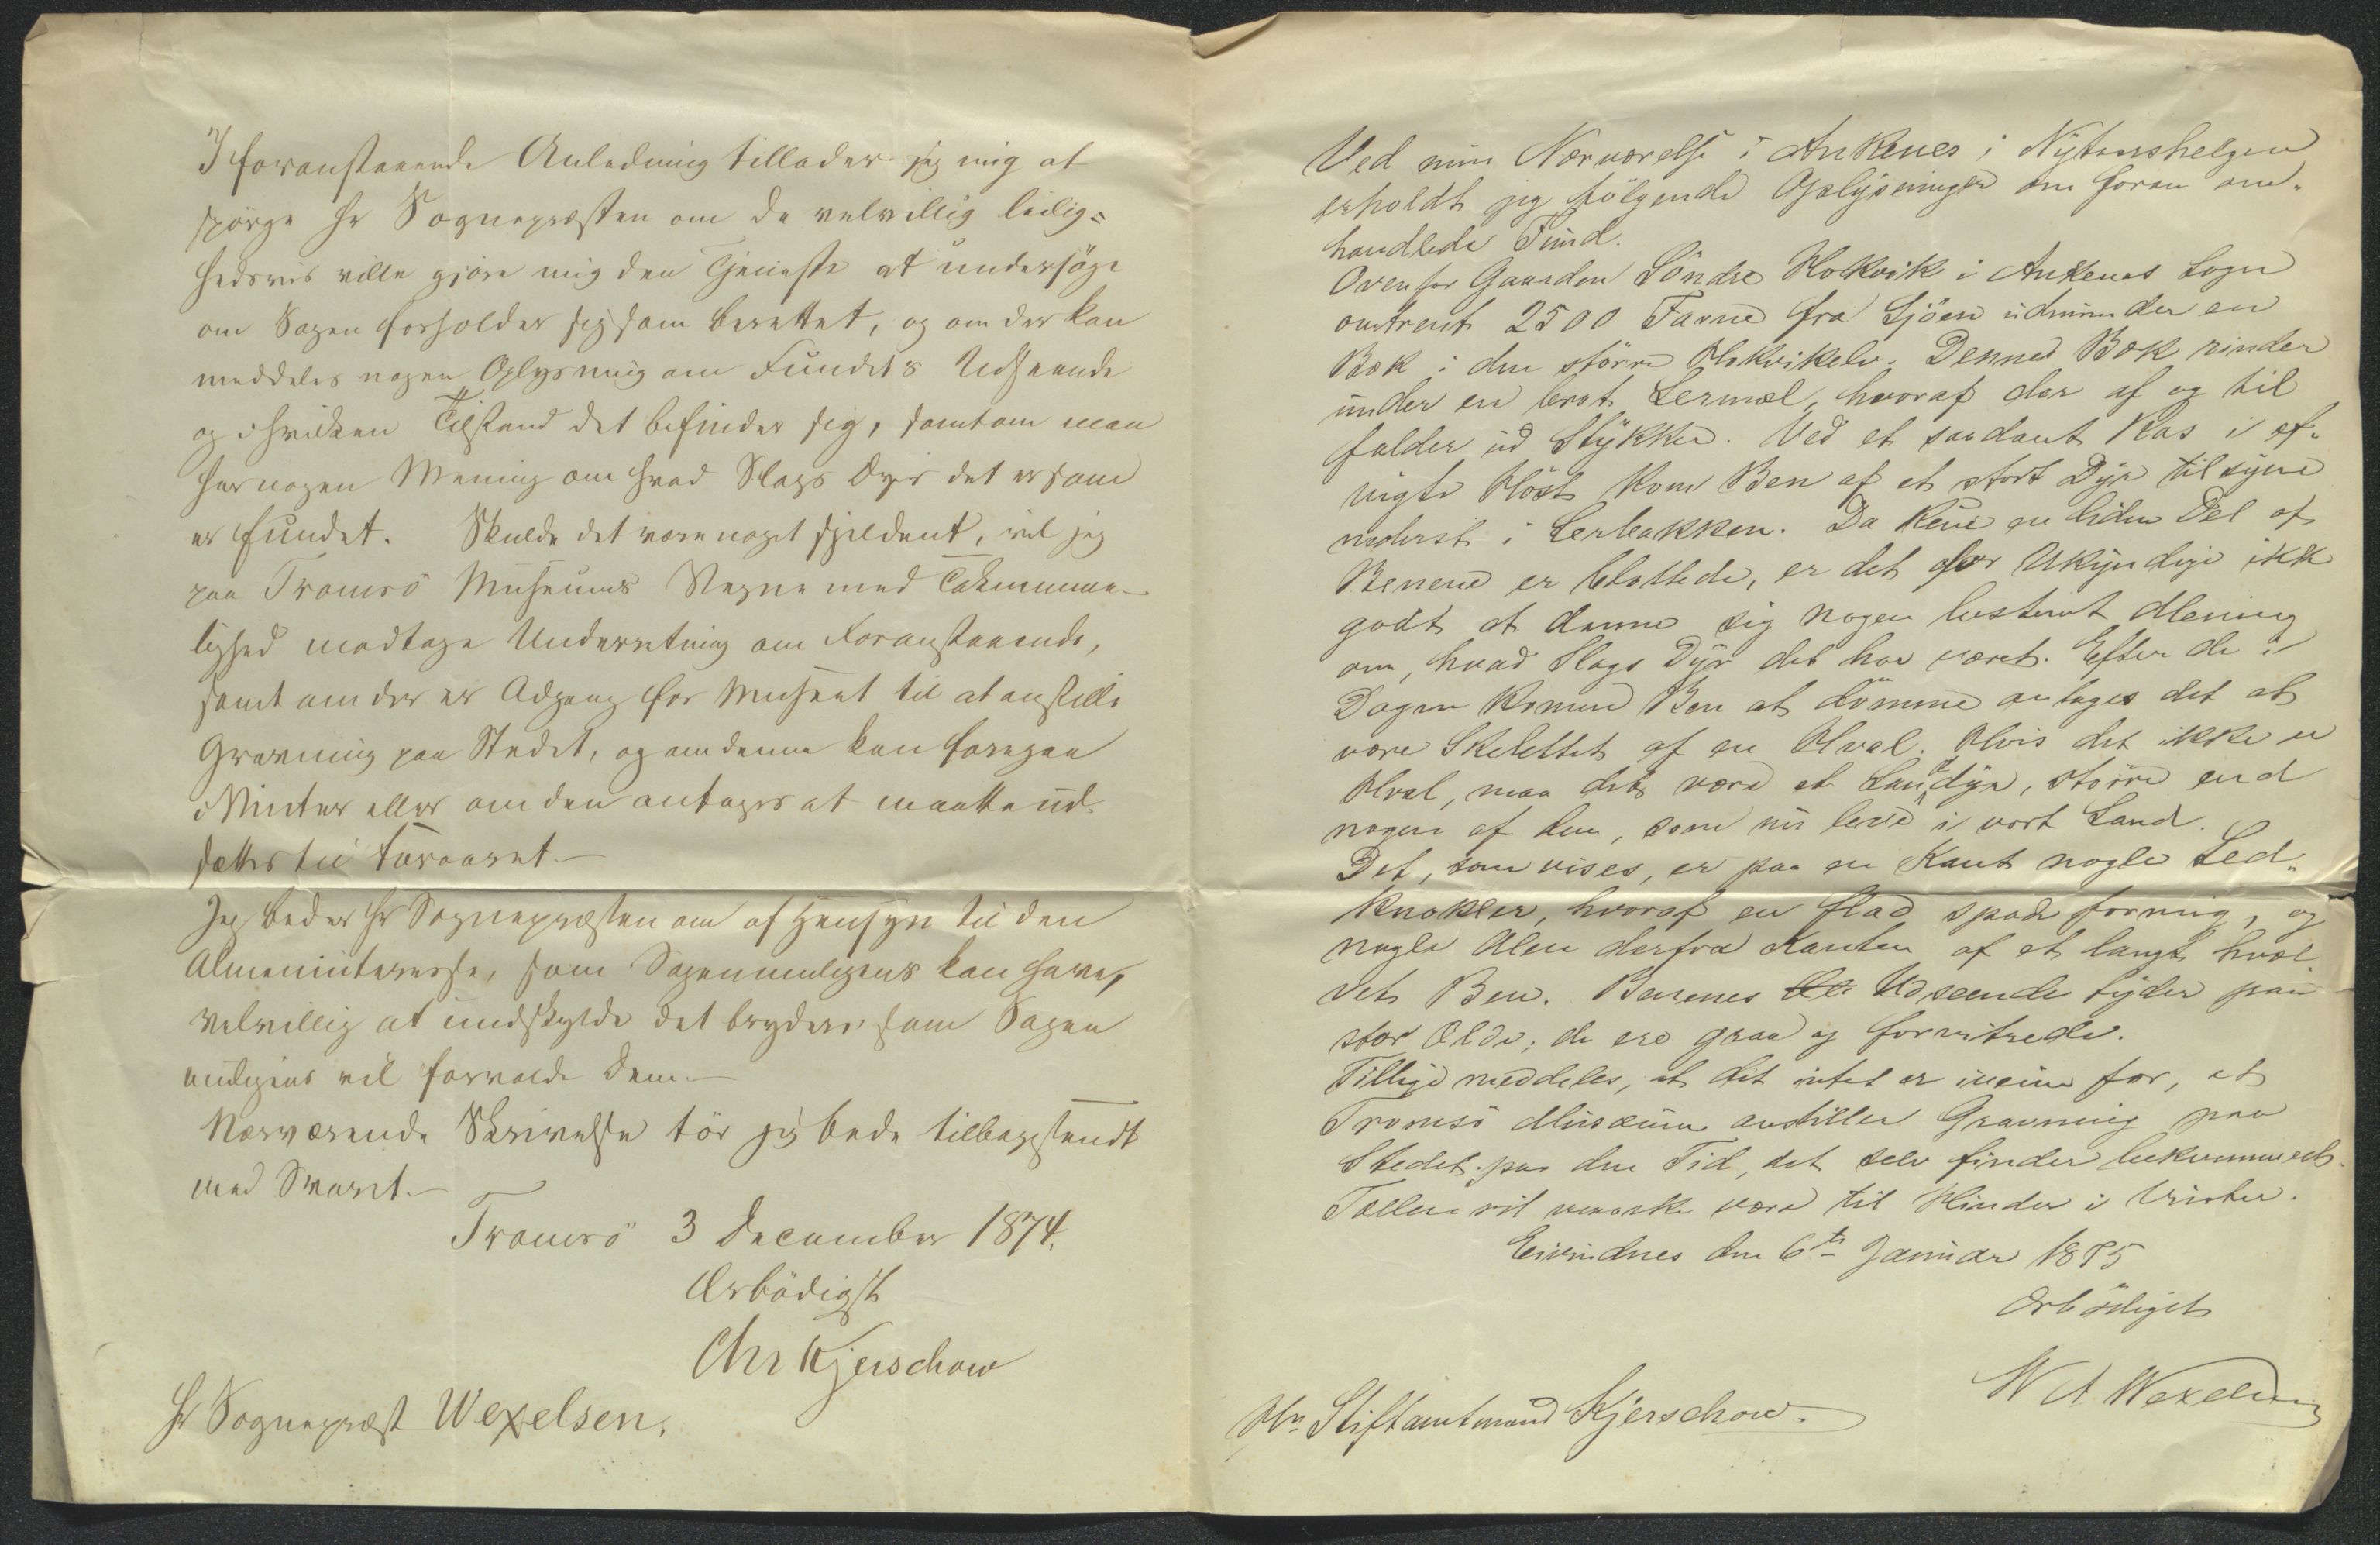 I foranstaaende Anledning tillader jeg mig at
spörge Hr Sognepræsten om De velvillig leilig=
hedsvis ville gjöre mig den Tjeneste at undersöge
om Sagen forholder sig som berettet, og om der kan
meddeles nogen Oplysning om Fundets Udseende
og i hvilken Tilstand det befinder sig, samt om man
har nogen Mening om hvad Slags Dyr det er som
er fundet. Skulde det være noget sjeldent, vil jeg
paa Tromsö Museums Vegne med Taknemme-
lighed modtage Underretning om Foranstaaende,
samt om der er Adgang for Museet til at anstille
Gravning paa Stedet, og om denne kan foregaa
i Vinter eller om den antages at maatte ud-
sættes til Foraaret.—
Jeg beder Hr Sognepræsten om af Hensyn til den
Almeninteresse, som Sagen muligens kan have,
velvillig at undskylde det Bryderi som Sagen
muligens vil forvolde Dem.—
Nærværende Skrivelse tör jeg bede tilbagesendt
med Svaret.—
Tromsö 3 December 1874.
Ærbödigst
Chr Kjerschow
Hr Sognepræst Wexelsen.
Ved min Nærværelse i Ankenes i Nytaarshelgen
erholdt jeg fölgende Oplysninger om foran om-
handlede Fund.
Ovenfor Gaarden Söndre Hokvik i Ankenes Sogn
omtrent 2500 Favne fra Sjöen udmunder en
Bæk i den större Hokvikelv. Denne Bæk rinder
under en brat Lermæl, hvoraf der af og til
falder ud Stykker. Ved et saadant Ras i af-
vigte Höst kom Ben af et stort Dyr tilsyne
nederst i Lerbakken. Da kun en liden Del af
Benene er blottede, er det for Ukyndige ikke
godt at danne sig nogen bestemt Mening
om, hvad Slags Dyr det har været. Efter de i
Dagen komne Ben at dömme antages det at
være Skelettet af en Hval. Hvis det ikke er
Hval, maa det være et Landdyr, större end
nogen af dem, som nu leve i vort Land.
Det, som vises, er paa en Kant nogle Led-
knokler, hvoraf en flad spadeformig, og
nogle Alen derfra Kanten af et langt hvæl-
vet Ben. Benenes Udseende tyder paa
stor Ælde; de ere graa og forvitrede.
Tillige meddeles, at det intet er iveien for, at
Tromsö Musæum anstiller Gravning paa
Stedet paa den Tid, det selv finder bekvemmest.
Tælen vil maaske være til Hinder i Vinter.
Eivindnes den 6te Januar 1875
Ærbödigst
W A Wexelsen
Hr. Stiftamtmand Kjerschow.